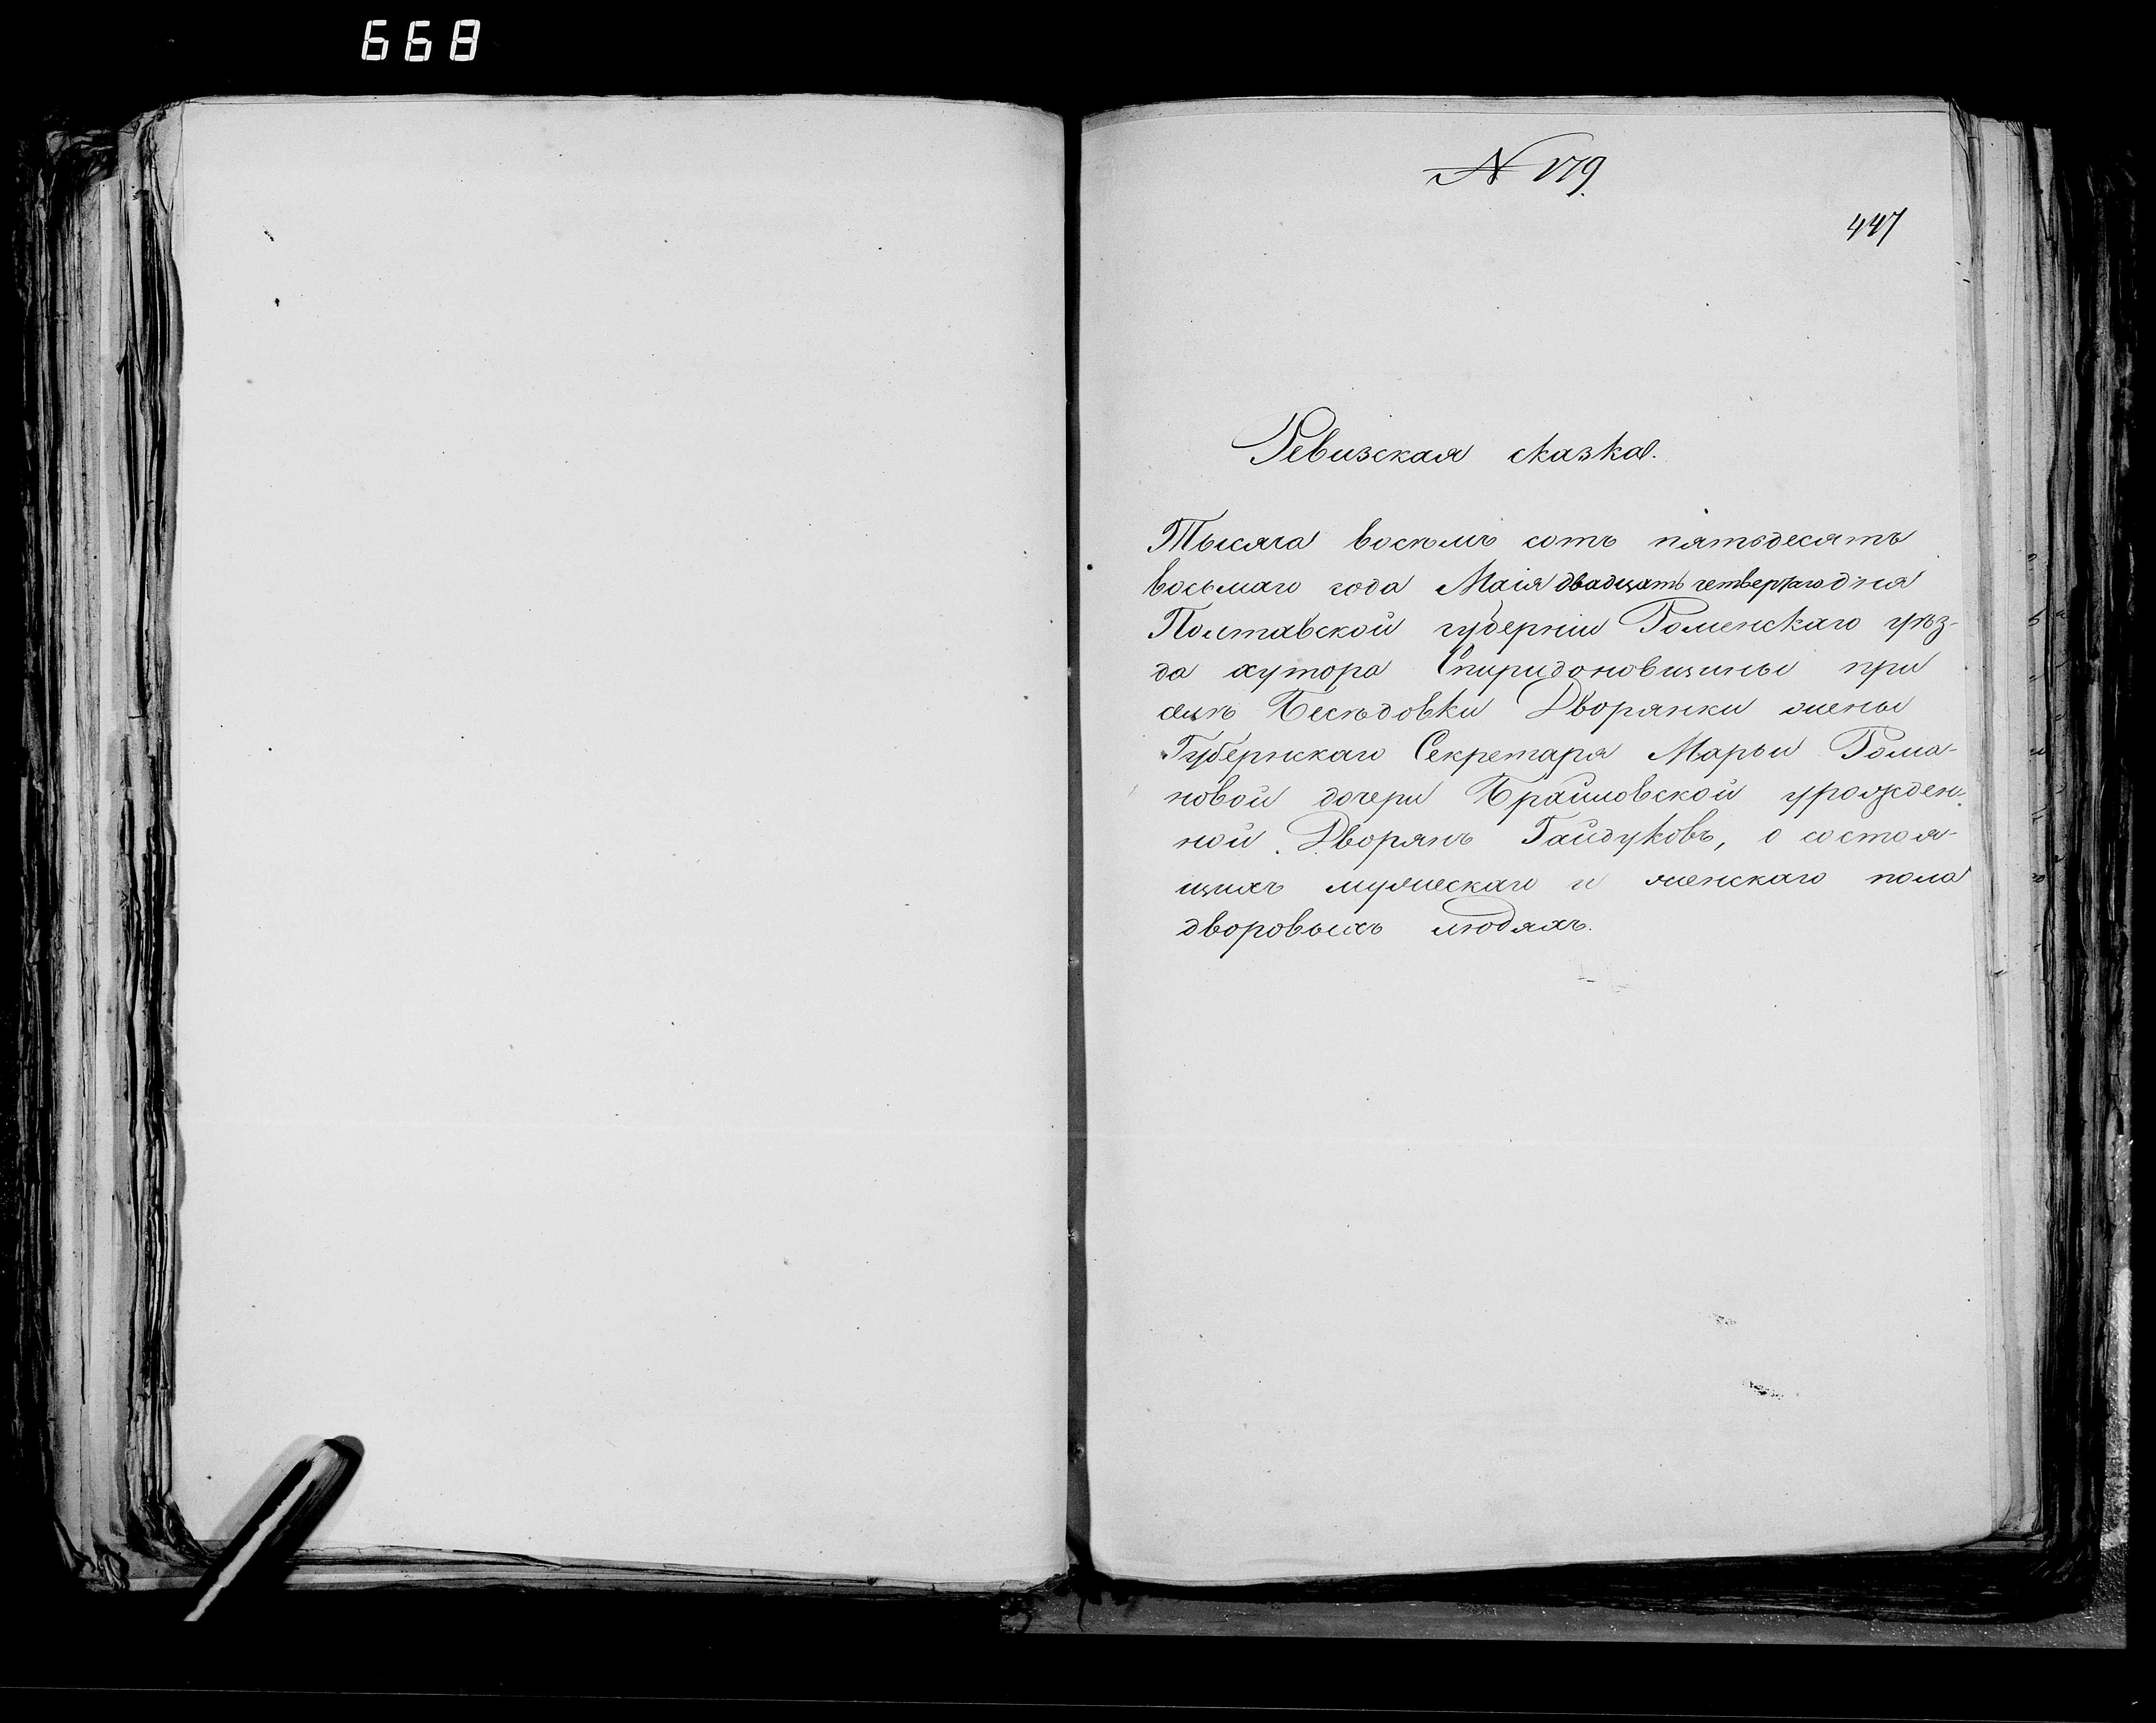 668
N 179.
447
Ревизская сказка.
Тысяча восемь сотъ пятьдесятъ
восьмаго года Маія двадцать четвертаго дня
Полтавской губерніи Роменскаго уѣз-
да хутора Спиридоновщины при
селѣ Бесѣдовки Дворянки жены
Губернскаго Секретаря Марьи Рома-
новой дочери Браиловской урожден-
ной Дворянъ Гайдуковъ, о состоя-
щихъ мужескаго и женскаго пола
дворовыхъ людяхъ.